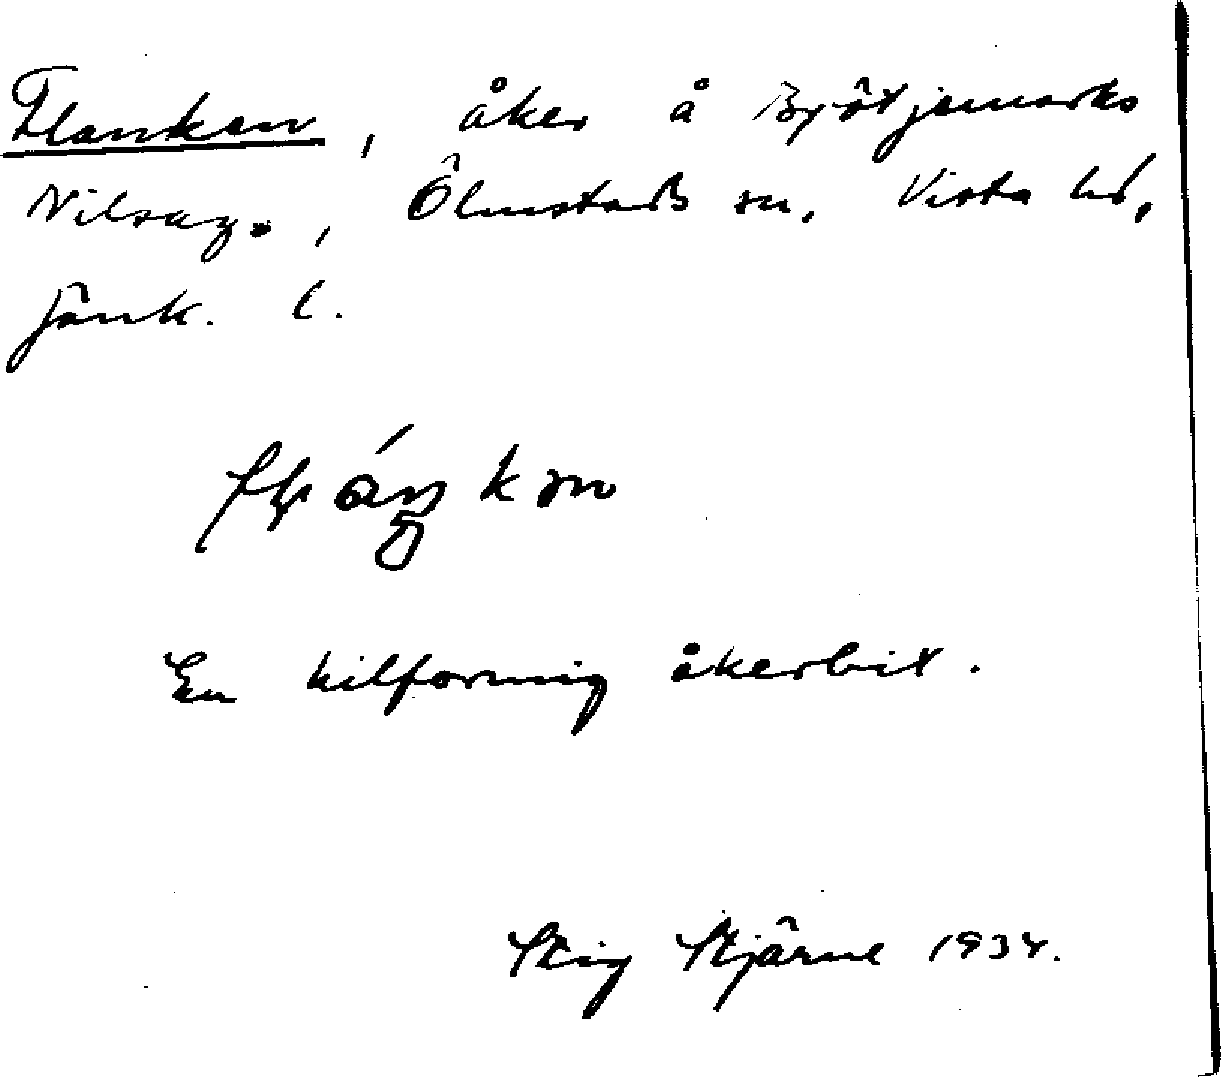 Flanken, åker å Bjötjemarks
Nilsag., Ölmstads sn, Vista hd,
Jönk. l.
En kilformig åkerbit.
Stig Stjärne 1934.